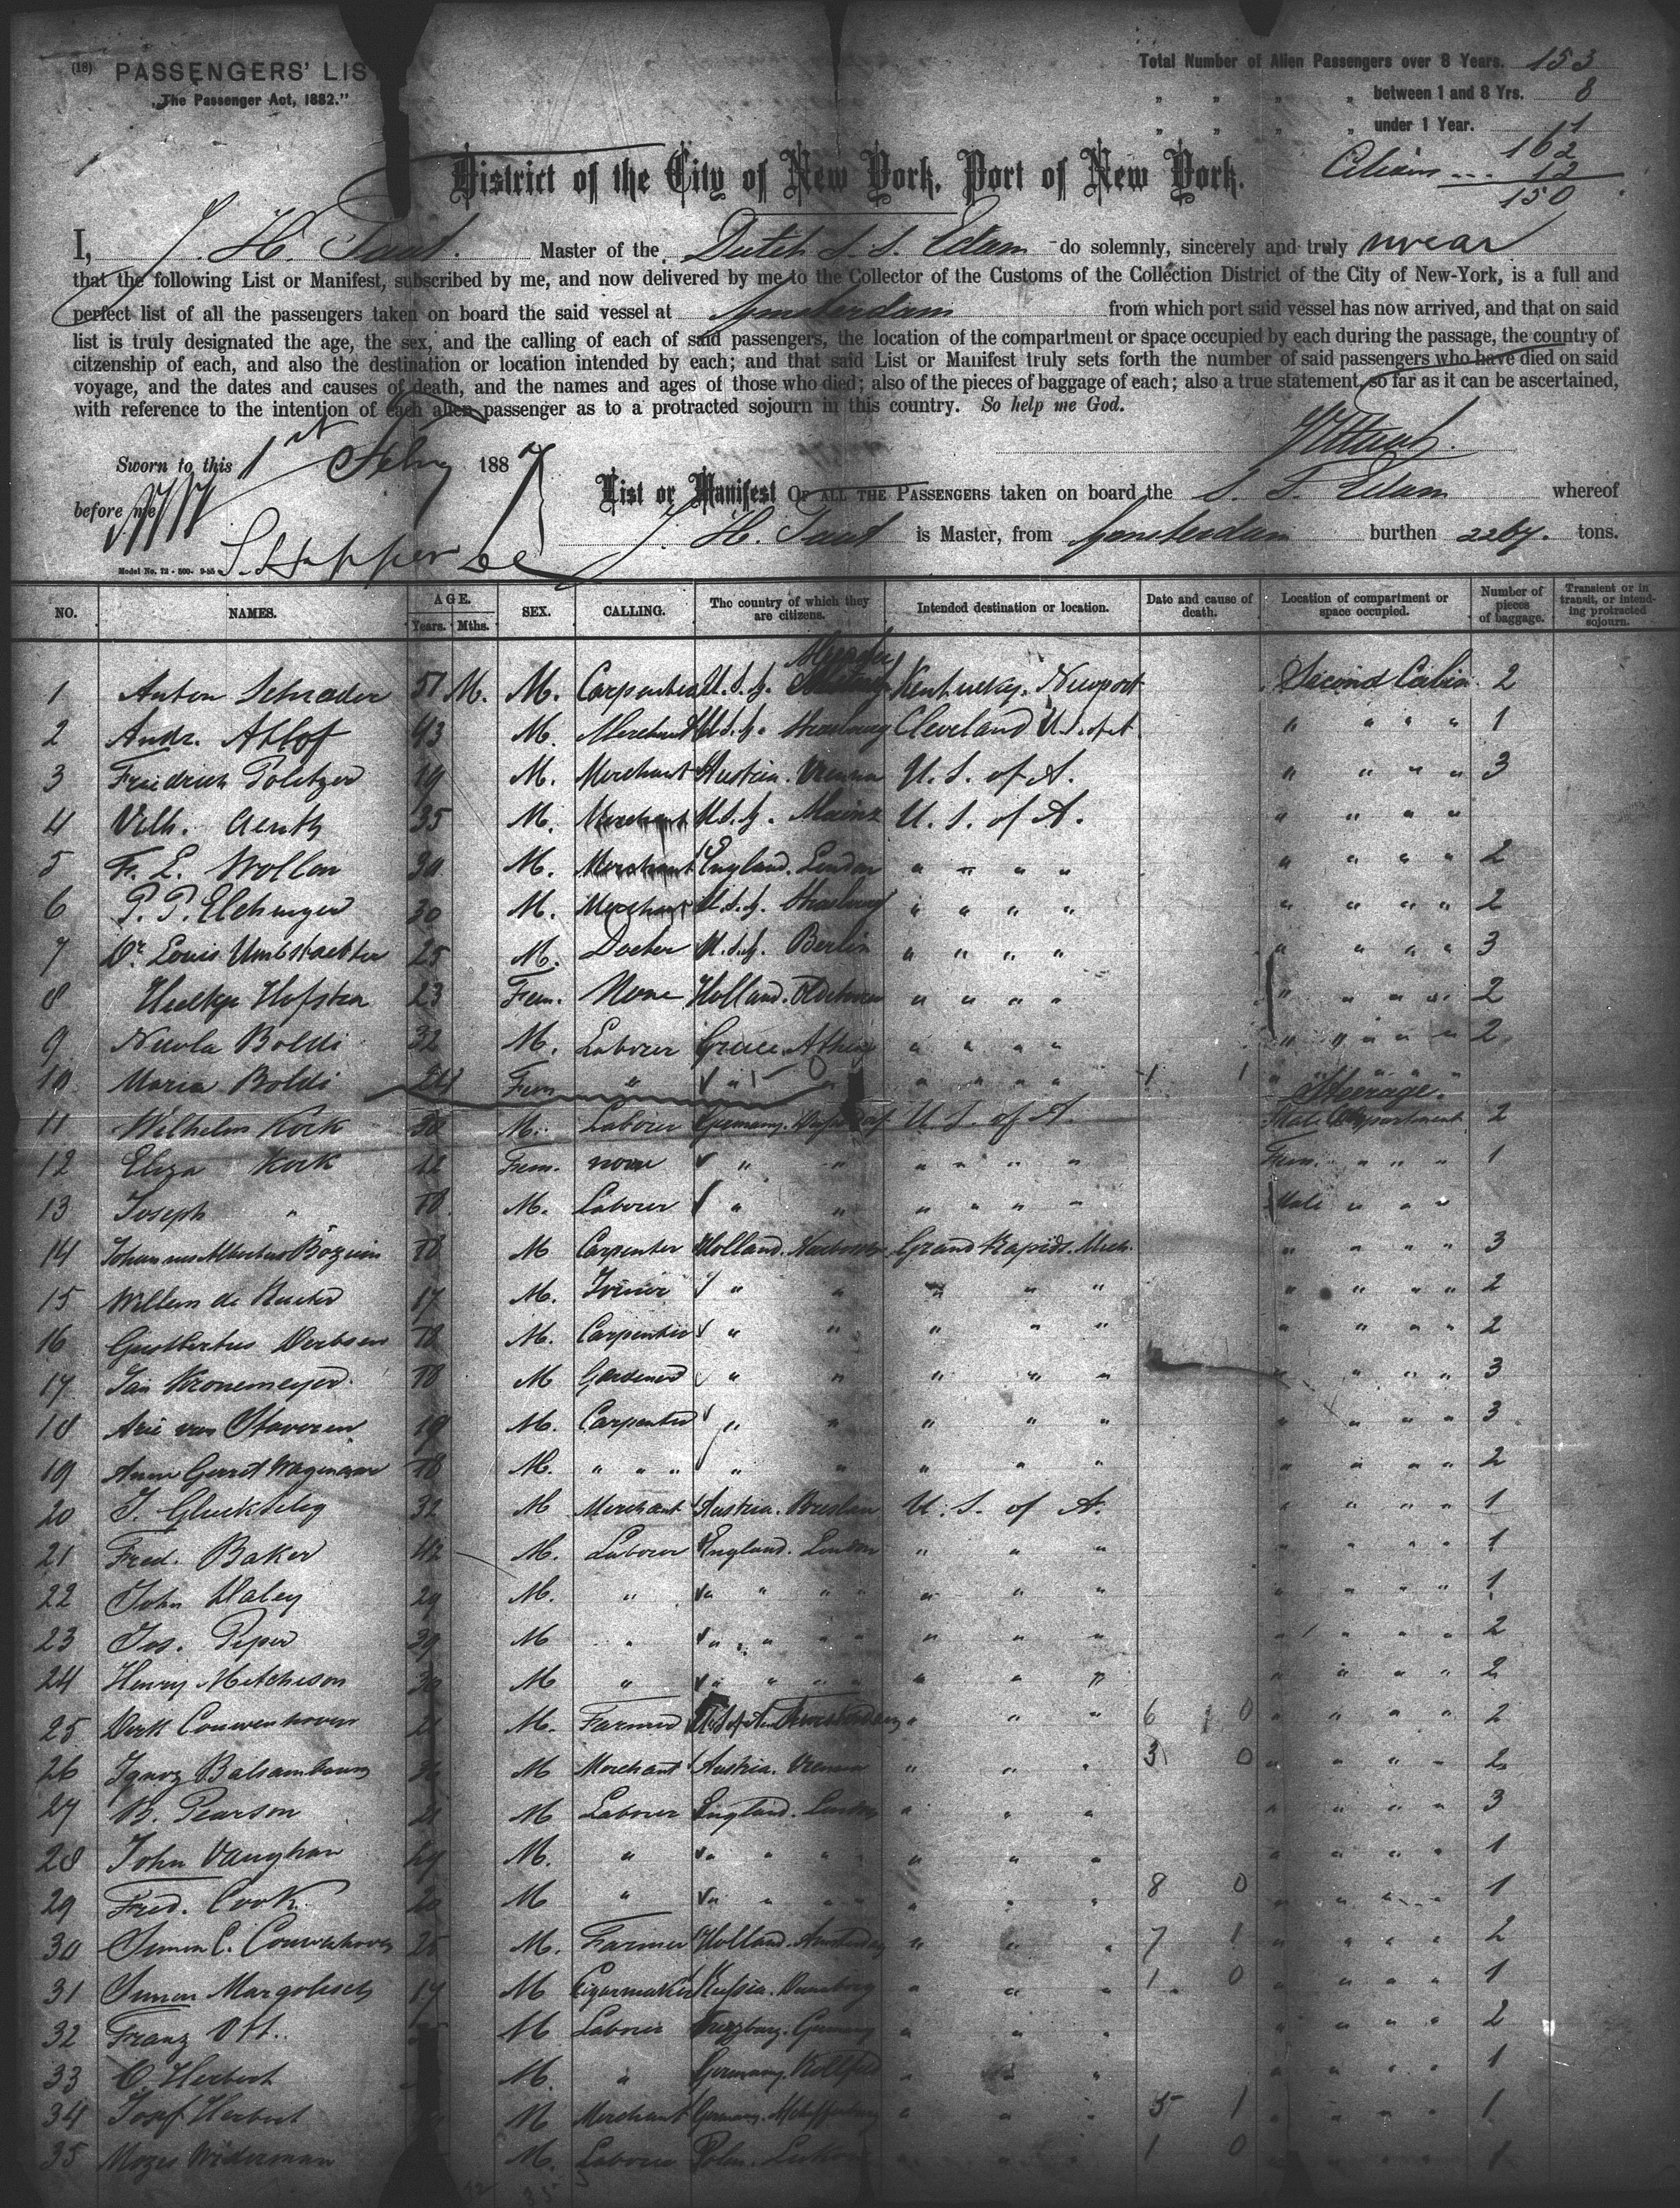 (18) PASSENGERS' LIS
„The Passenger Act, 1882."
Total Number of Alien Passengers over 8 Years. 153
" " " " between 1 and 8 Yrs. 8
" " " " under 1 Year. 1
162
12
150
District of the City of New York, Port of New York.
I, J. H. Taat. Master of the Dutch S. S. Edam do solemnly, sincerely and truly swear
that the following List or Manifest, subscribed by me, and now delivered by me to the Collector of the Customs of the Collection District of the City of New-York, is a full and
perfect list of all the passengers taken on board the said vessel at Amsterdam from which port said vessel has now arrived, and that on said
list is truly designated the age, the sex, and the calling of each of said passengers, the location of the compartment or space occupied by each during the passage, the country of
citzenship of each, and also the destination or location intended by each; and that said List or Manifest truly sets forth the number of said passengers who have died on said
voyage, and the dates and causes of death, and the names and ages of those who died; also of the pieces of baggage of each; also a true statement, so far as it can be ascertained,
with reference to the intention of each alien passenger as to a protracted sojourn in this country. So help me God.
Sworn to this 1st Feby 1887
before me
List or Manifest OF ALL THE PASSENGERS taken on board the S. S. Edam whereof
J. H. Taat is Master, from Amsterdam burthen 2267. tons.
NO. NAMES. AGE. Years. Mths. SEX. CALLING. The country of which they are citizens. Intended destination or location. Date and cause of death. Location of compartment or space occupied. Number of pieces of baggage. Transient or in transit, or intending protracted sojourn.
1 Anton Schrader 51 M. M. Carpenter U.S.g. Kentucky, Newport Second Cabin 2
2 Andr. Atlof 43 M. Merchant U.S.g. Strasburg Cleveland U.S. of A " " " " 1
3 Friedrich Politzer 19 M. Merchant Austria. Vienna U. S. of A. " " " " 3
4 35 M. Merchant U.S.g. Mainz U. S. of A. " " " "
5 F. E. Wollen 30 M. Merchant England. London " " " " " " " " 2
6 P. P. Elchinger 30 M. Merchant U.S.g. Strasburg " " " " " " " " 2
7 Dr. Louis Umbstaetter 25 M. Doctor U.S.g. Berlin " " " " " " " " 3
8 Hofstra 23 Fem. None Holland. " " " " " " " " 2
9 Nicola Boldi 32 M. Laborer Greece. Athens " " " " " " " " 2
10 Maria Boldi 24 Fem " " " " " " " " " " " "
Steerage.
11 Wilhelm Kock 30 M. Laborer Germany. U. S. of A. Male Compartment 2
12 Eliza Kock 12 Fem. none " " " " " " Fem. " " " 1
13 Joseph " 18 M. Laborer " " " " " " Male " " "
14 Johannes Albertus 18 M Carpenter Holland. Grand Rapids. Mich. " " " " 3
15 Willem de 17 M. " " " " " " " " " 2
16 18 M. Carpenter " " " " " " " " " 2
17 Jan Kronemeyer 18 M Gardener " " " " " " " " " 3
18 Arie van Staveren 19 M. Carpenter " " " " " " " " " 3
19 Gerrit Wagenaar 18 M. " " " " " " " " " " " " 2
20 J. Glückselig 32 M Merchant Austria. Breslau U. S. of A. " " " " 1
21 Fred. Baker 42 M. Laborer England. London " " " " " " " 1
22 John Haley 29 M. " " " " " " " " " " " 1
23 Jos. Piper 39 M " " " " " " " " " " " 2
24 Henry Mitcheson 30 M " " " " " " " " " " " 2
25 Dirk Couwenhoven 21 M. Farmer U.S. of A. Amsterdam " " " 6 0 " " " " 2
26 Ignaz Balsambaum M Merchant Austria. Vienna " " " 3 0 " " " " 2
27 B. Pearson 21 M Laborer England. London " " " " " " " 3
28 John Vaughan M. " " " " " " " " " " " 1
29 Fred. Cook 20 M " " " " " " " 8 0 " " " " 1
30 Simon C. Couwenhoven 25 M. Farmer Holland. Amsterdam " " " 7 1 " " " " 2
31 Simon Margolisch 17 M Cigarmaker Russia. " " " 1 0 " " " " 1
32 Franz Ott. M Laborer Wurzburg. Germany " " " " " " " 2
33 C Herbert M. " Germany. " " " " " " " 1
34 Josef Herbert M Merchant Germany. " " " 5 1 " " " " 1
35 Mozes Widerman M. Laborer 1 0 1